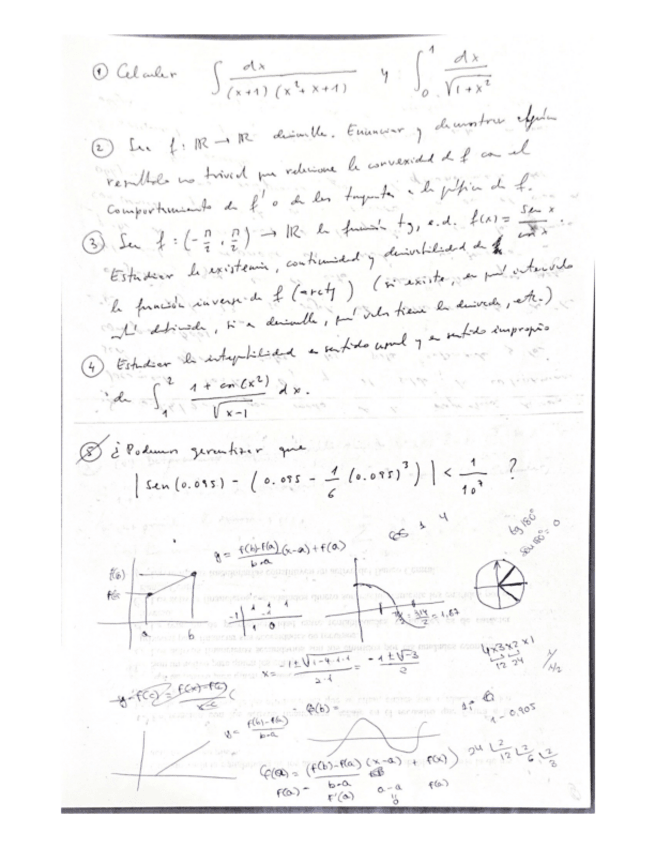 ① Calcular ∫ dx / (x+1)(x²+x+1) y ∫₀¹ dx / √(1+x²)
② Sea f: ℝ → ℝ derivable. Enunciar y demostrar algún
resultado no trivial que relacione la convexidad de f con el
comportamiento de f' o de las tangentes a la gráfica de f.
③ Sea f: (-π/2, π/2) → ℝ la función tg, e.d. f(x) = sen x / cos x.
Estudiar la existencia, continuidad y derivabilidad de
la función inversa de f (arctg) (si existe, en qué intervalo
está definida, si es derivable, qué valor tiene la derivada, etc.)
④ Estudiar la integrabilidad en sentido usual y en sentido impropio
de ∫₁² (1 + cos(x²)) / √(x-1) dx.
⑤ ¿Podemos garantizar que
| sen(0.095) - (0.095 - 1/6 (0.095)³) | < 1/10⁷ ?
y = (f(b)-f(a))/(b-a) (x-a) + f(a)
tg 180°
sen 180° = 0
f(b)
a b
-1 | 1 1 1
1 0
x = (-1 ± √(1-4·1·1)) / 2·1 = (-1 ± √-3) / 2
4x3x2x1
12 24
y - f(c) = f(x)-f(c)
y = (f(b)-f(a))/(b-a)
f(b) =
1 - 0.905
(f(b)-f(a))/(b-a) (x-a) + f(x)
24 2
12 2
6 2
3
f(a) -
f'(a)
a-a
0
f(a)